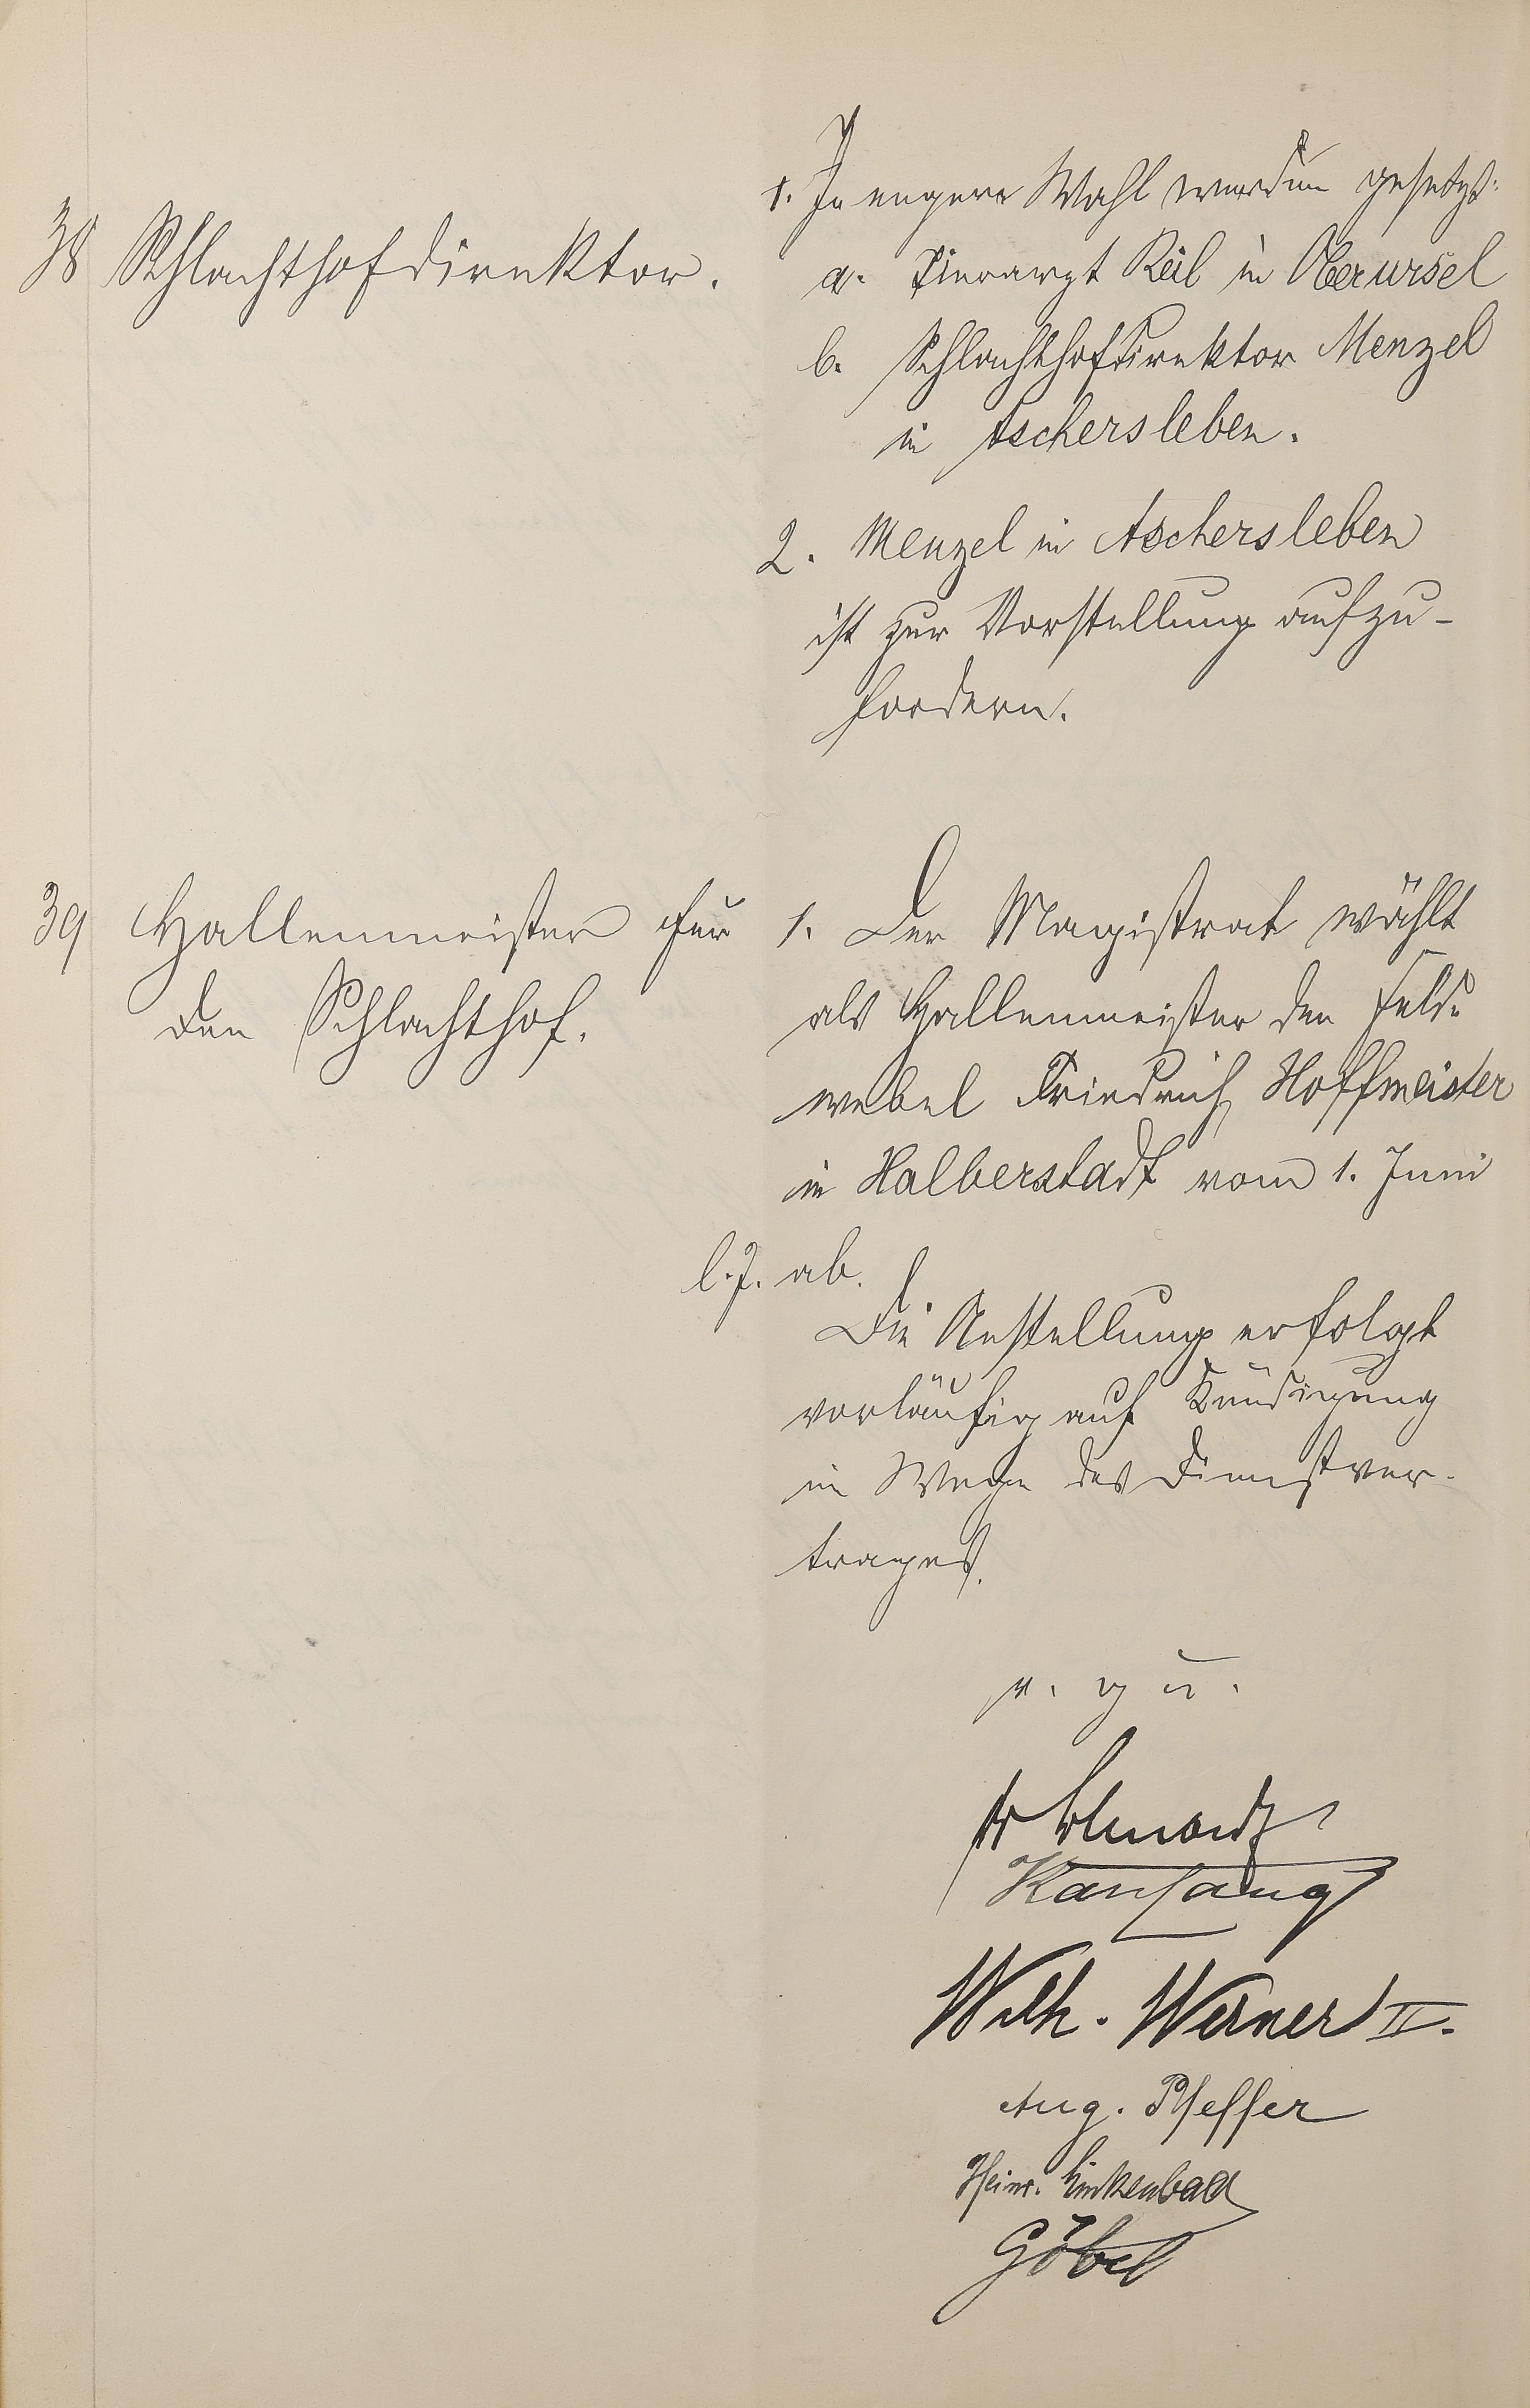 38 Schlachthofdirektor.
1. In engere Wahl werden gesetzt:
a. Tierarzt Keil in Oberursel
b. Schlachthofdirektor Menzel
in Aschersleben.
2. Menzel in Aschersleben
ist zur Vorstellung aufzu-
fordern.
39 Hallenmeister für
den Schlachthof.
1. Der Magistrat wählt
als Hallenmeister den Feld-
webel Friedrich Hoffmeister
in Halberstadt vom 1. Juni
l. J. ab.
Die Anstellung erfolgt
vorläufig auf Kündigung
im Wege des Dienstver-
trages.
v. g u.
Wilh. Werner II.
Aug. Pfeffer
Heinr.
Göbel